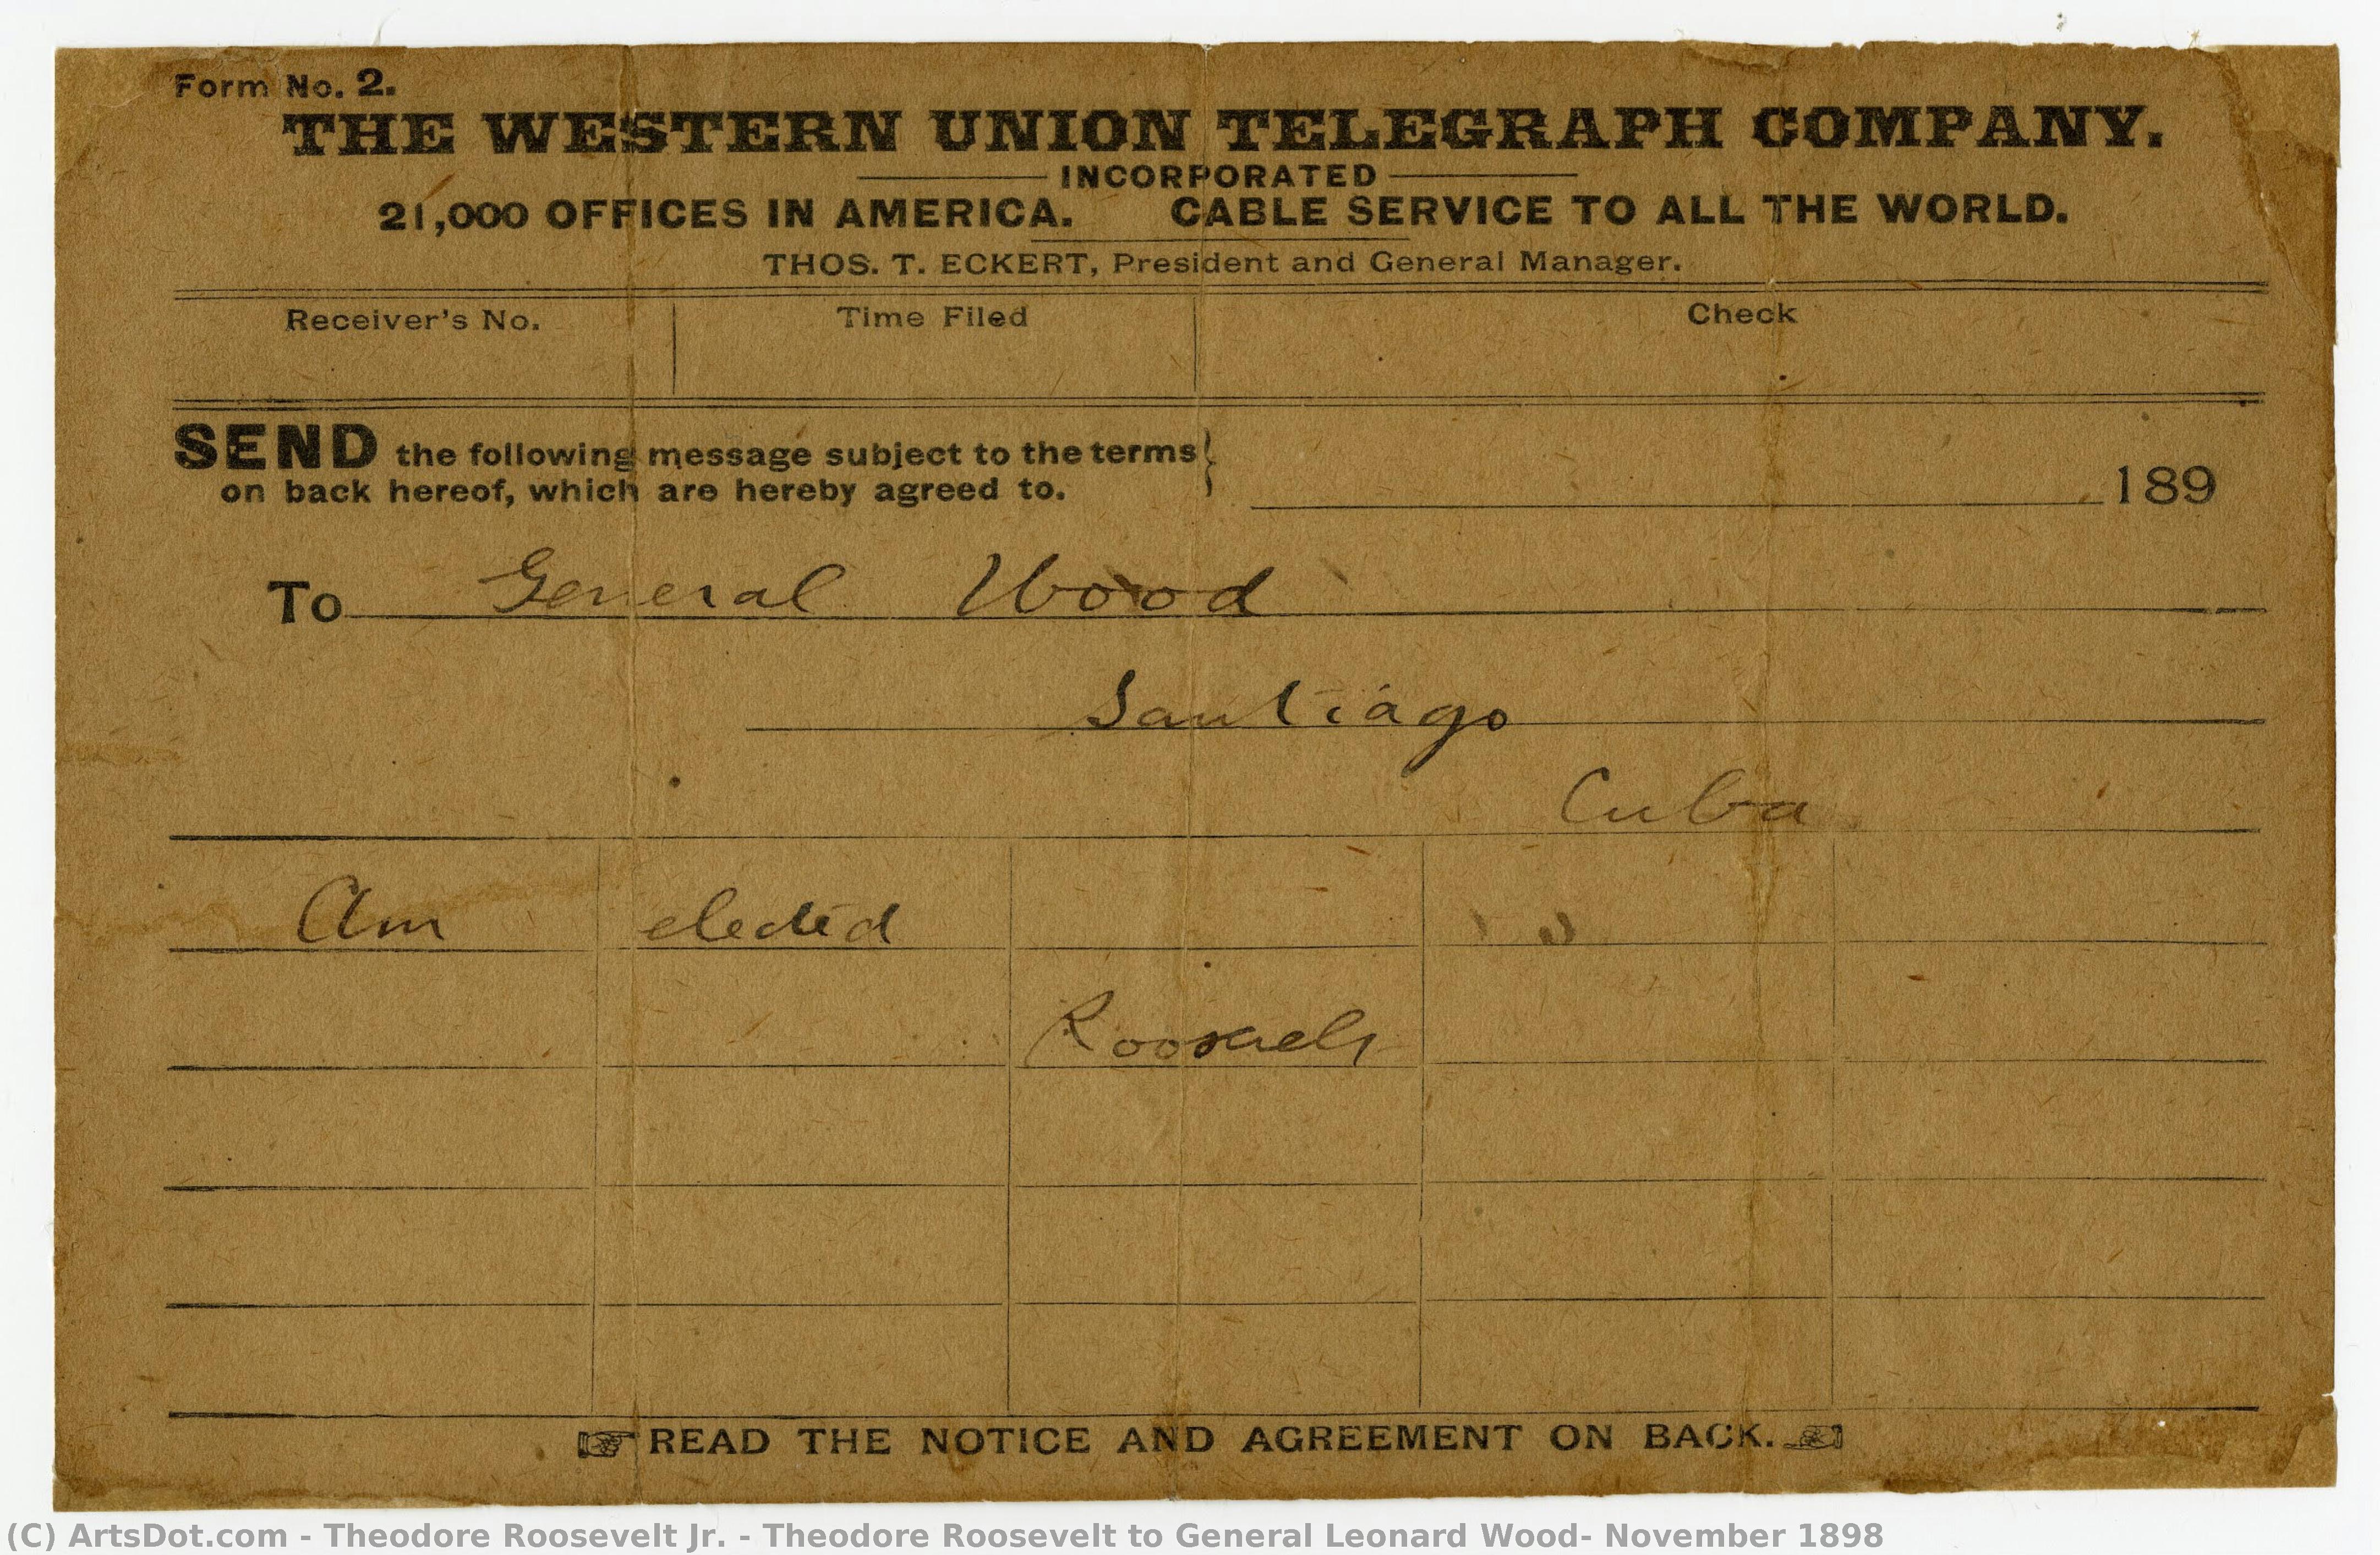 Form No. 2.
THE WESTERN UNION TELEGRAPH COMPANY.
INCORPORATED
21,000 OFFICES IN AMERICA. CABLE SERVICE TO ALL THE WORLD.
THOS. T. ECKERT, President and General Manager.
Receiver's No. Time Filed Check
SEND the following message subject to the terms
on back hereof, which are hereby agreed to. } 189
To General Wood
Santiago
Cuba
Am elected
Roosevelt
☞ READ THE NOTICE AND AGREEMENT ON BACK. ☜
(C) ArtsDot.com - Theodore Roosevelt Jr. - Theodore Roosevelt to General Leonard Wood- November 1898